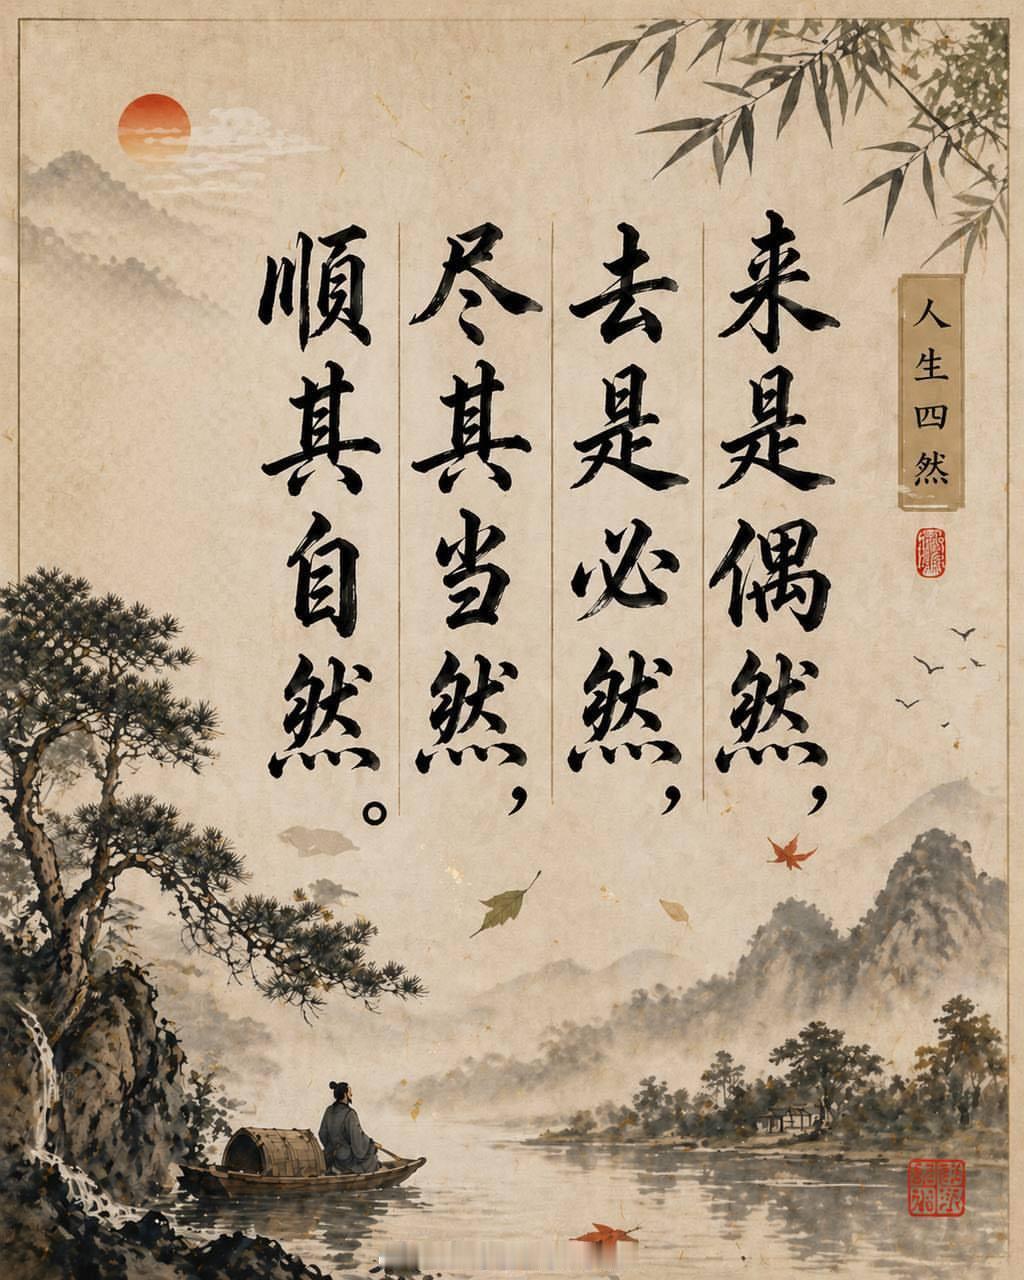 人生四然
来是偶然，
去是必然，
尽其当然，
順其自然。